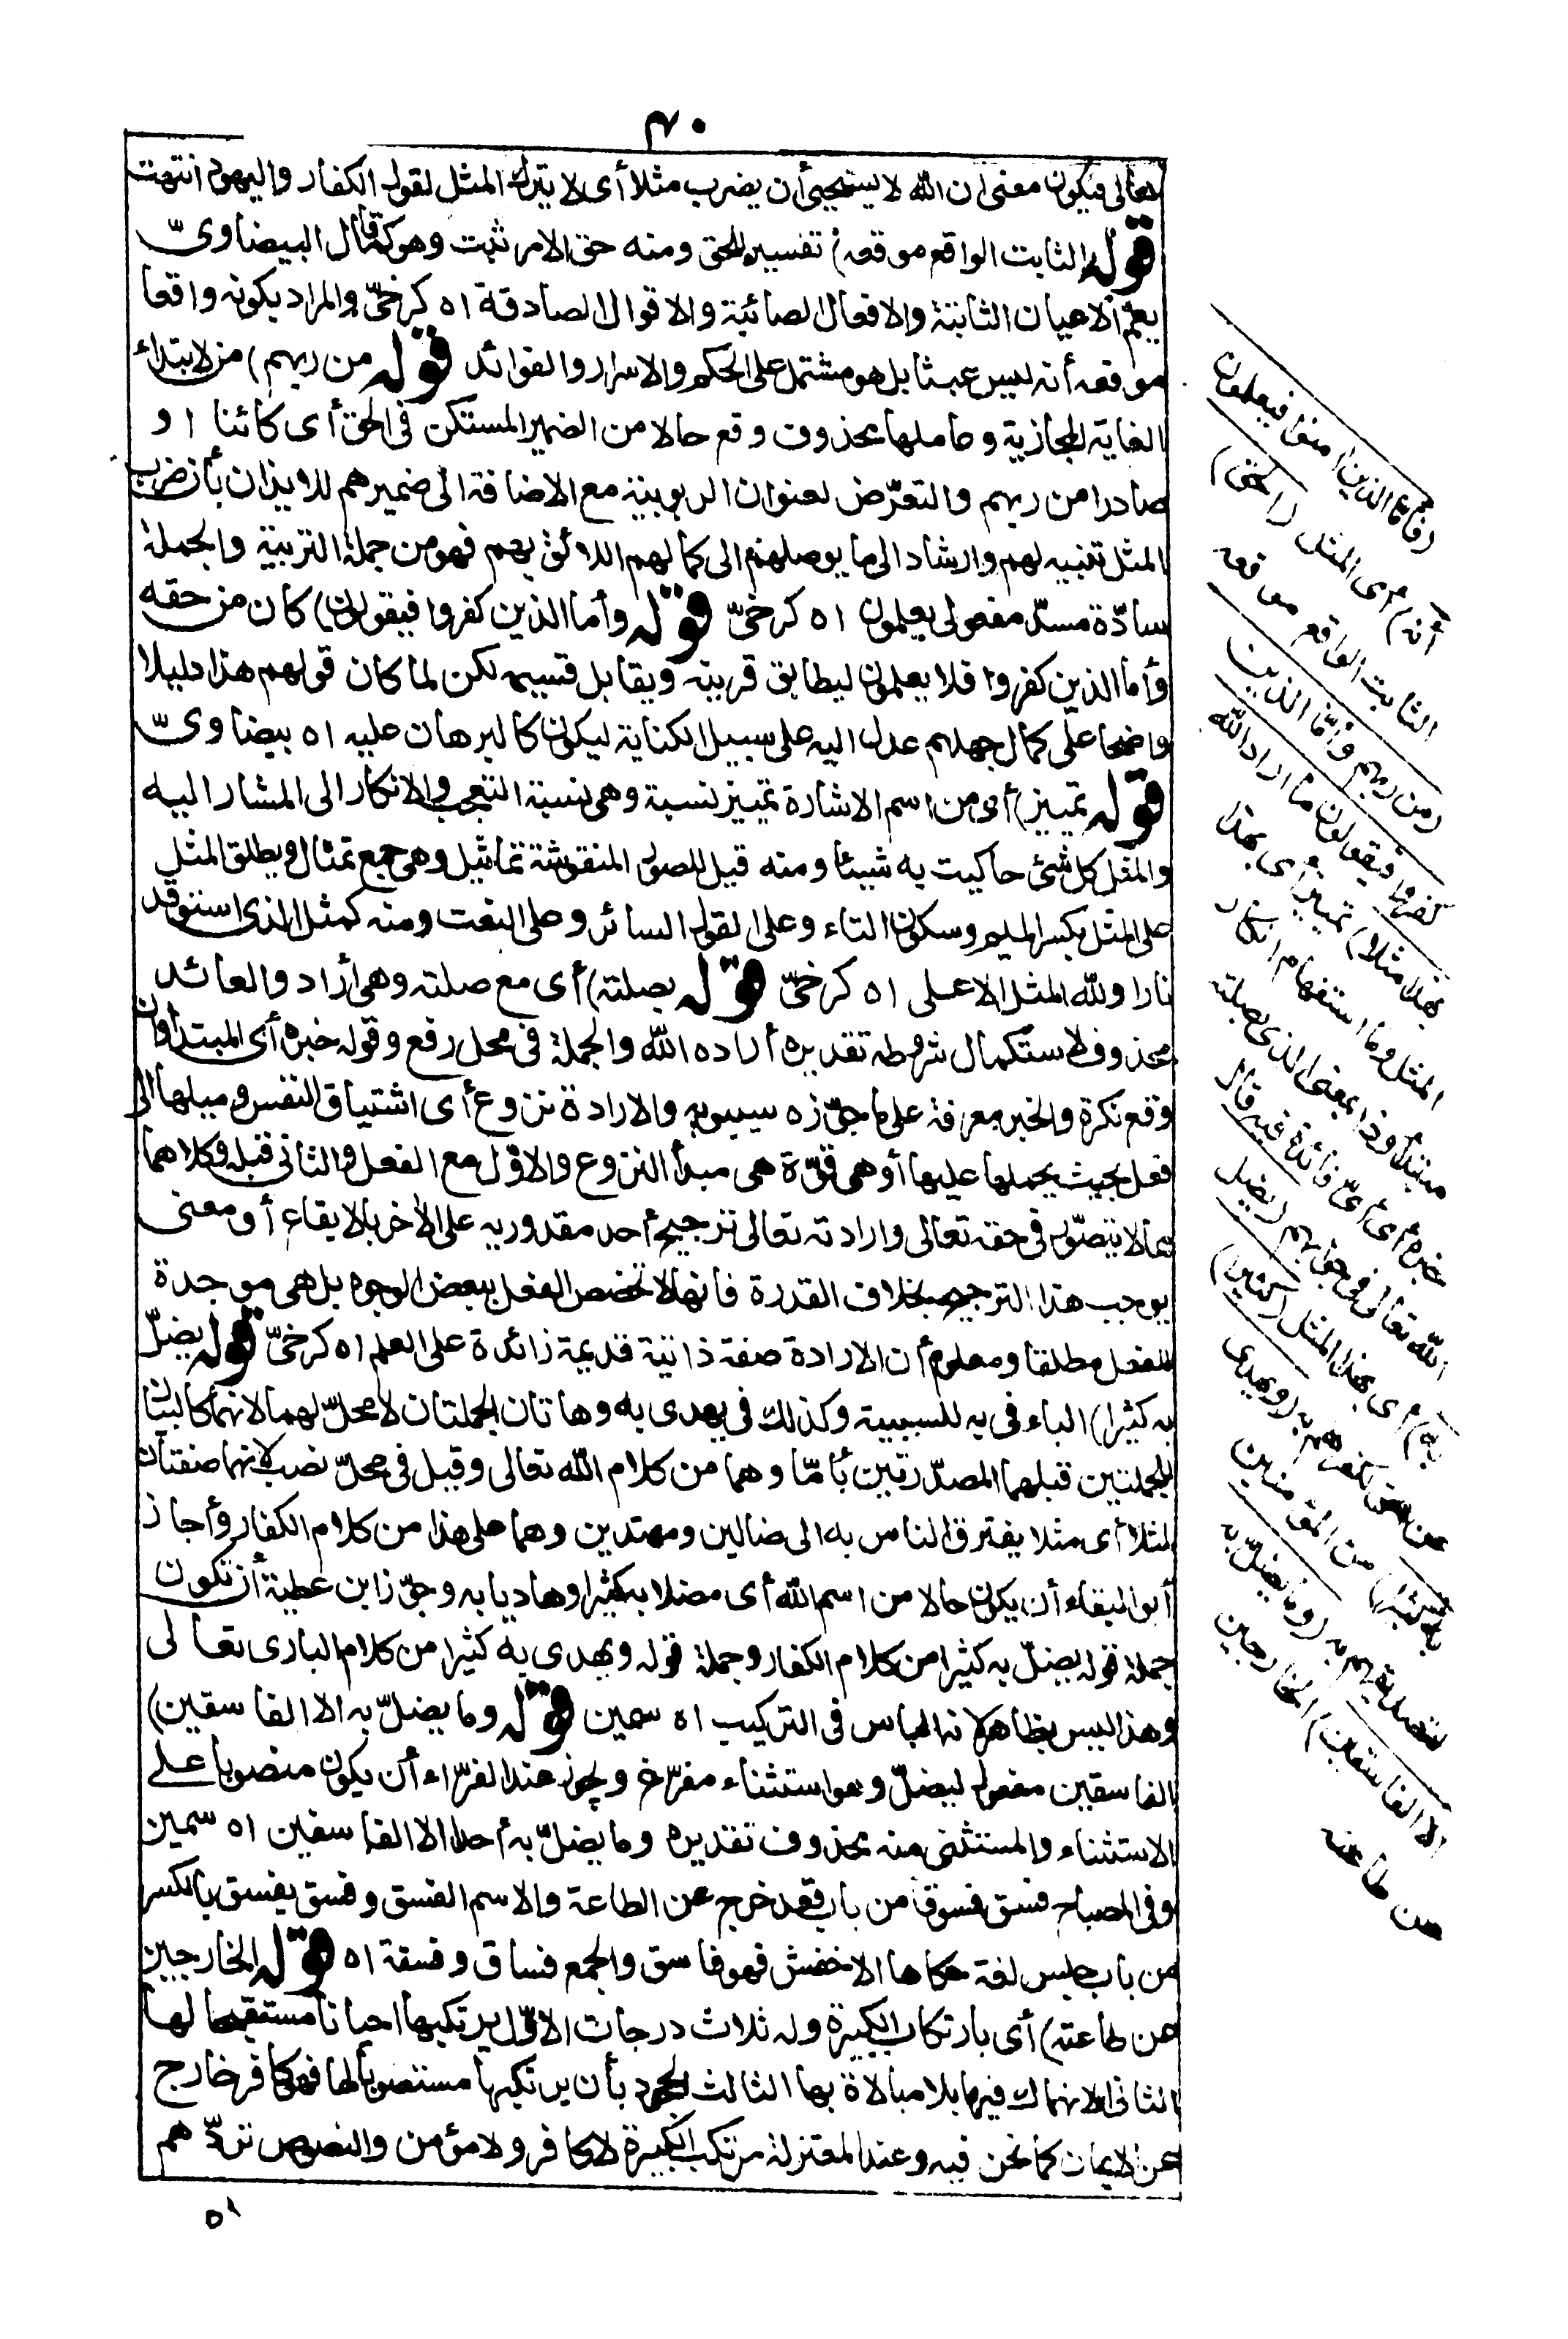 ٤٠
تعالى فيكون معنى ان الله لا يستحيى أن يضرب مثلا أى لا يترك المثل لقول الكفار واليهود انتهت
قوله الثابت الواقع موقعه) تفسير للحق ومنه حق الامر ثبت وهو كما قال البيضاوىّ
يعمّ الاعيان الثابتة والافعال الصائبة والاقوال الصادقة اه كرخىّ والمراد بكونه واقعا
موقعه أنه ليس عبثا بل هو مشتمل على الحكم والاسرار والفوائد قوله من ربهم) من لابتداء
الغاية المجازية وعاملها محذوف وقع حالا من الضمير المستكن فى الحق أى كائنا او
صادرا من ربهم والتعرّض لعنوان الربوبية مع الاضافة الى ضميرهم للايذان بأن ضرب
المثل تنبيه لهم وارشاد الى ما يوصلهم الى كمالهم اللائق بهم فهو من جملة التربية والجملة
سادّة مسدّ مفعولى يعلمون اه كرخىّ قوله وأما الذين كفروا فيقولون) كان من حقه
وأما الذين كفروا فلا يعلمون ليطابق قرينه ويقابل قسيمه لكن لما كان قولهم هذا دليلا
واضحا على كمال جهلهم عدل اليه على سبيل الكناية ليكون كالبرهان عليه اه بيضاوىّ
قوله تمييز) أى من اسم الاشارة تمييز نسبة وهى نسبة التعجب والانكار الى المشار اليه
والمثل كل شئ حاكيت به شيئا ومنه قيل للصور المنقوشة تماثيل وهى جمع تمثال ويطلق المثل
على المثل بكسر الميم وسكون الثاء وعلى القول السائر وعلى النعت ومنه كمثل الذى استوقد
نارا ولله المثل الاعلى اه كرخىّ قوله بصلته) أى مع صلته وهى أراد والعائد
محذوف لاستكمال شروطه تقديره أراده الله والجملة فى محل رفع وقوله خبره أى المبتدأ وان
وقع نكرة والخبر معرفة على ما جوّزه سيبويه والارادة نزوع أى اشتياق النفس وميلها الى
فعل بحيث يحملها عليها أو هى قوّة هى مبدأ النزوع والاوّل مع الفعل والثانى قبله وكلاهما
مما لا يتصوّر فى حقه تعالى وارادته تعالى ترجيح أحد مقدوريه على الآخر بالايقاع أو معنى
يوجب هذا الترجيح بخلاف القدرة فانها لا تخصص الفعل ببعض الوجوه بل هى موجدة
للفعل مطلقا ومعلوم أن الارادة صفة ذاتية قديمة زائدة على العلم اه كرخىّ قوله يضلّ
به كثيرا) الباء فى به للسببية وكذلك فى يهدى به وهاتان الجملتان لا محلّ لهما لانهما كالبيان
للجملتين قبلهما المصدّرتين بأمّا وهما من كلام الله تعالى وقيل فى محلّ نصب لانهما صفتان
لمثلا أى مثلا يفترق الناس به الى ضالين ومهتدين وهما على هذا من كلام الكفار وأجاز
أبو البقاء أن يكون حالا من اسم الله أى مضلا به كثيرا وهاديا به وجوّز ابن عطية أن تكون
جملة قوله يضلّ به كثيرا من كلام الكفار وجملة قوله ويهدى به كثيرا من كلام البارى تعالى
وهذا ليس بظاهر لانه الباس فى التركيب اه سمين قوله وما يضلّ به الا الفاسقين)
الفاسقين مفعول ليضلّ وهو استثناء مفرّغ ويجوز عند الفرّاء أن يكون منصوبا على
الاستثناء والمستثنى منه محذوف تقديره وما يضلّ به أحدا الا الفاسقين اه سمين
وفى المصباح فسق فسوقا من باب قعد خرج عن الطاعة والاسم الفسق وفسق يفسق بالكسر
من باب جلس لغة حكاها الاخفش فهو فاسق والجمع فساق وفسقة اه قوله الخارجين
عن طاعته) أى بارتكاب الكبيرة وله ثلاث درجات الاوّل يرتكبها احيانا مستقبحا لها
الثانى الانهماك فيها بلا مبالاة بها الثالث الجحود بأن يرتكبها مستصوبا لها فهو كافر خارج
عن الايمان كما نحن فيه وعند المعتزلة مرتكب الكبيرة لا كافر ولا مؤمن والنصوص تردّ هم
(فأمّا الذين امنوا فيعلمون
أنه) أى المثل (الحق)
الثابت الواقع موقعه
(من ربهم وأمّا الذين
كفروا فيقولون ما اراد الله
بهذا مثلا) تمييز أى بهذا
المثل وما استفهام انكار
مبتدأ وذا بمعنى الذى بصلته
خبره أى أىّ فائدة فيه قال
الله تعالى فى جوابهم (يضل
به) أى بهذا المثل (كثيرا)
عن الحق لكفرهم به (ويهدى
به كثيرا) من المؤمنين
لتصديقهم به (وما يضلّ به
الا الفاسقين) الخارجين
عن طاعته